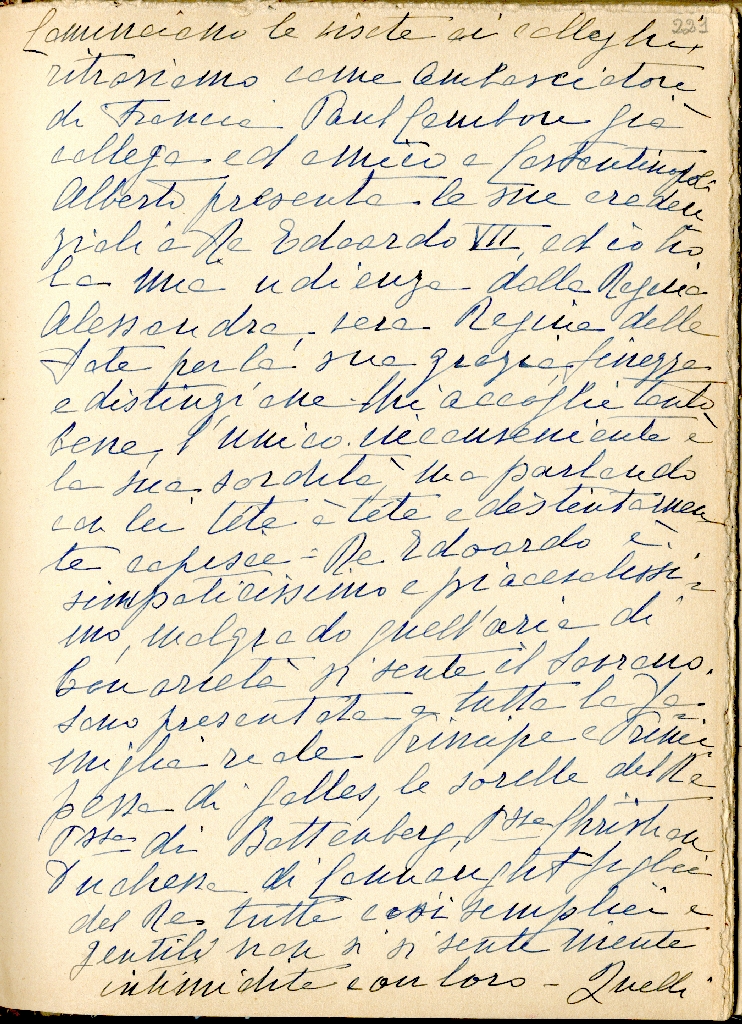 221
Cominciano le visite ai colleghi,
ritroviamo come Ambasciatore
di Francia Paul Cambon già
collega ed amico a Costantinopoli
Alberto presenta le sue creden
ziali a Re Edoardo VII, ed io ho
la mia udienza dalla Regina
Alessandra, vera Regina delle
Fate per la sua grazia, finezza
e distinzione. Mi accoglie tanto
bene, l'unico inconveniente è
la sua sordità, ma parlando
con lei tête à tête e distintamen
te capisce = Re Edoardo è
simpaticissimo e piacevolissi-
mo, malgrado quell'aria di
bonarietà si sente il Sovrano.
Sono presentata a tutta la Fa-
miglia reale Principe e Princi
pessa di Galles, le sorelle del Re
Pssa di Battenberg, Pssa Christian
Duchessa di Connaught figlie
del Re, tutte così semplici e
gentili non si si sente niente
intimidite con loro - Quelli